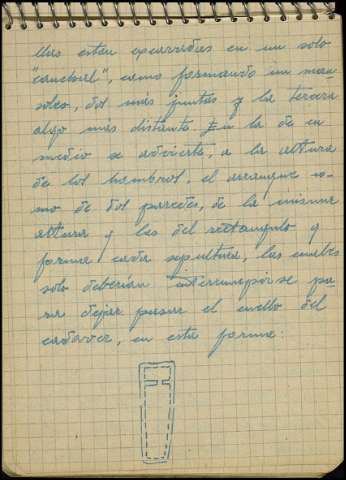 llas estan excavadas en un solo
"canchal", como formando un mau
soleo, dos más juntas y la tercera
algo más distante. En la de en
medio se advierte, a la altura
de los hombros, el arranque co-
mo de dos paredes, de la misma
altura q las del rectangulo q
forma cada sepultura, las cuales
solo deberían interrumpirse pa-
ra dejar pasar el cuello del
cadaver, en esta forma: